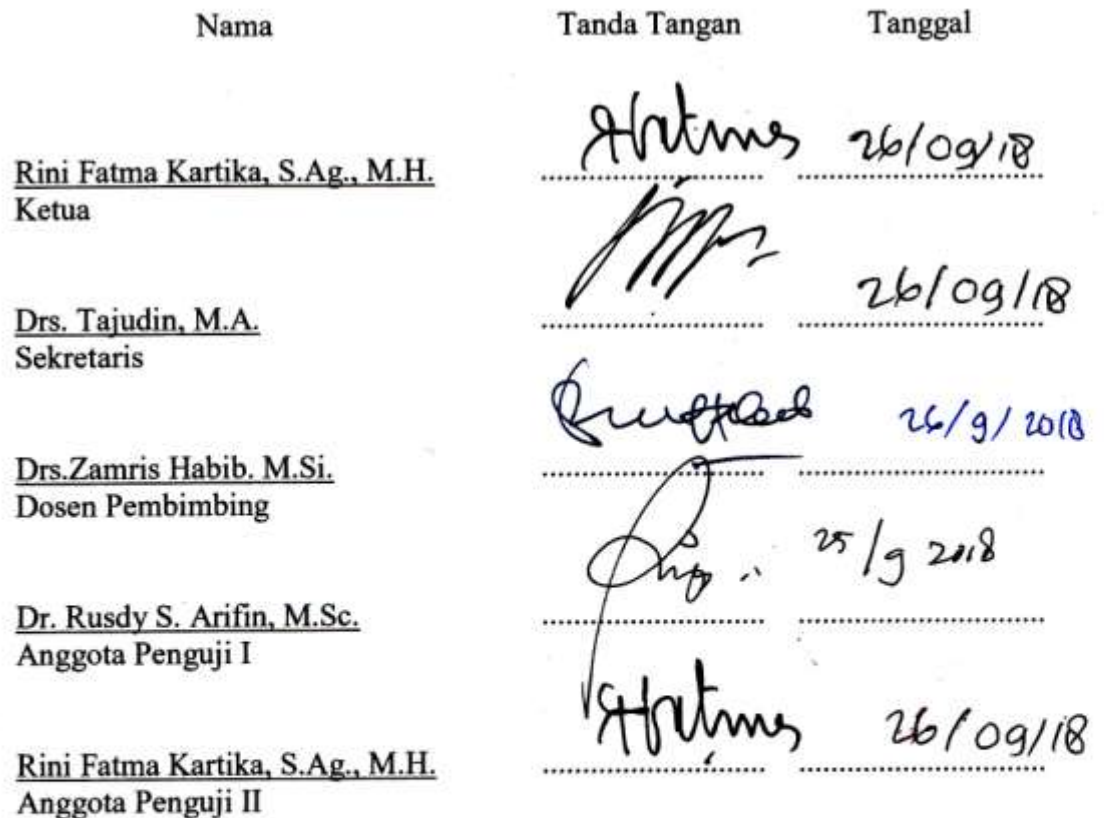 Nama Tanda Tangan Tanggal
26/09/18
Rini Fatma Kartika, S.Ag., M.H. .............................. ..............................
Ketua
26/09/18
Drs. Tajudin, M.A. .............................. ..............................
Sekretaris
26/9/2018
Drs.Zamris Habib. M.Si. .............................. ..............................
Dosen Pembimbing
25/9 2018
Dr. Rusdy S. Arifin, M.Sc. .............................. ..............................
Anggota Penguji I
26/09/18
Rini Fatma Kartika, S.Ag., M.H. .............................. ..............................
Anggota Penguji II